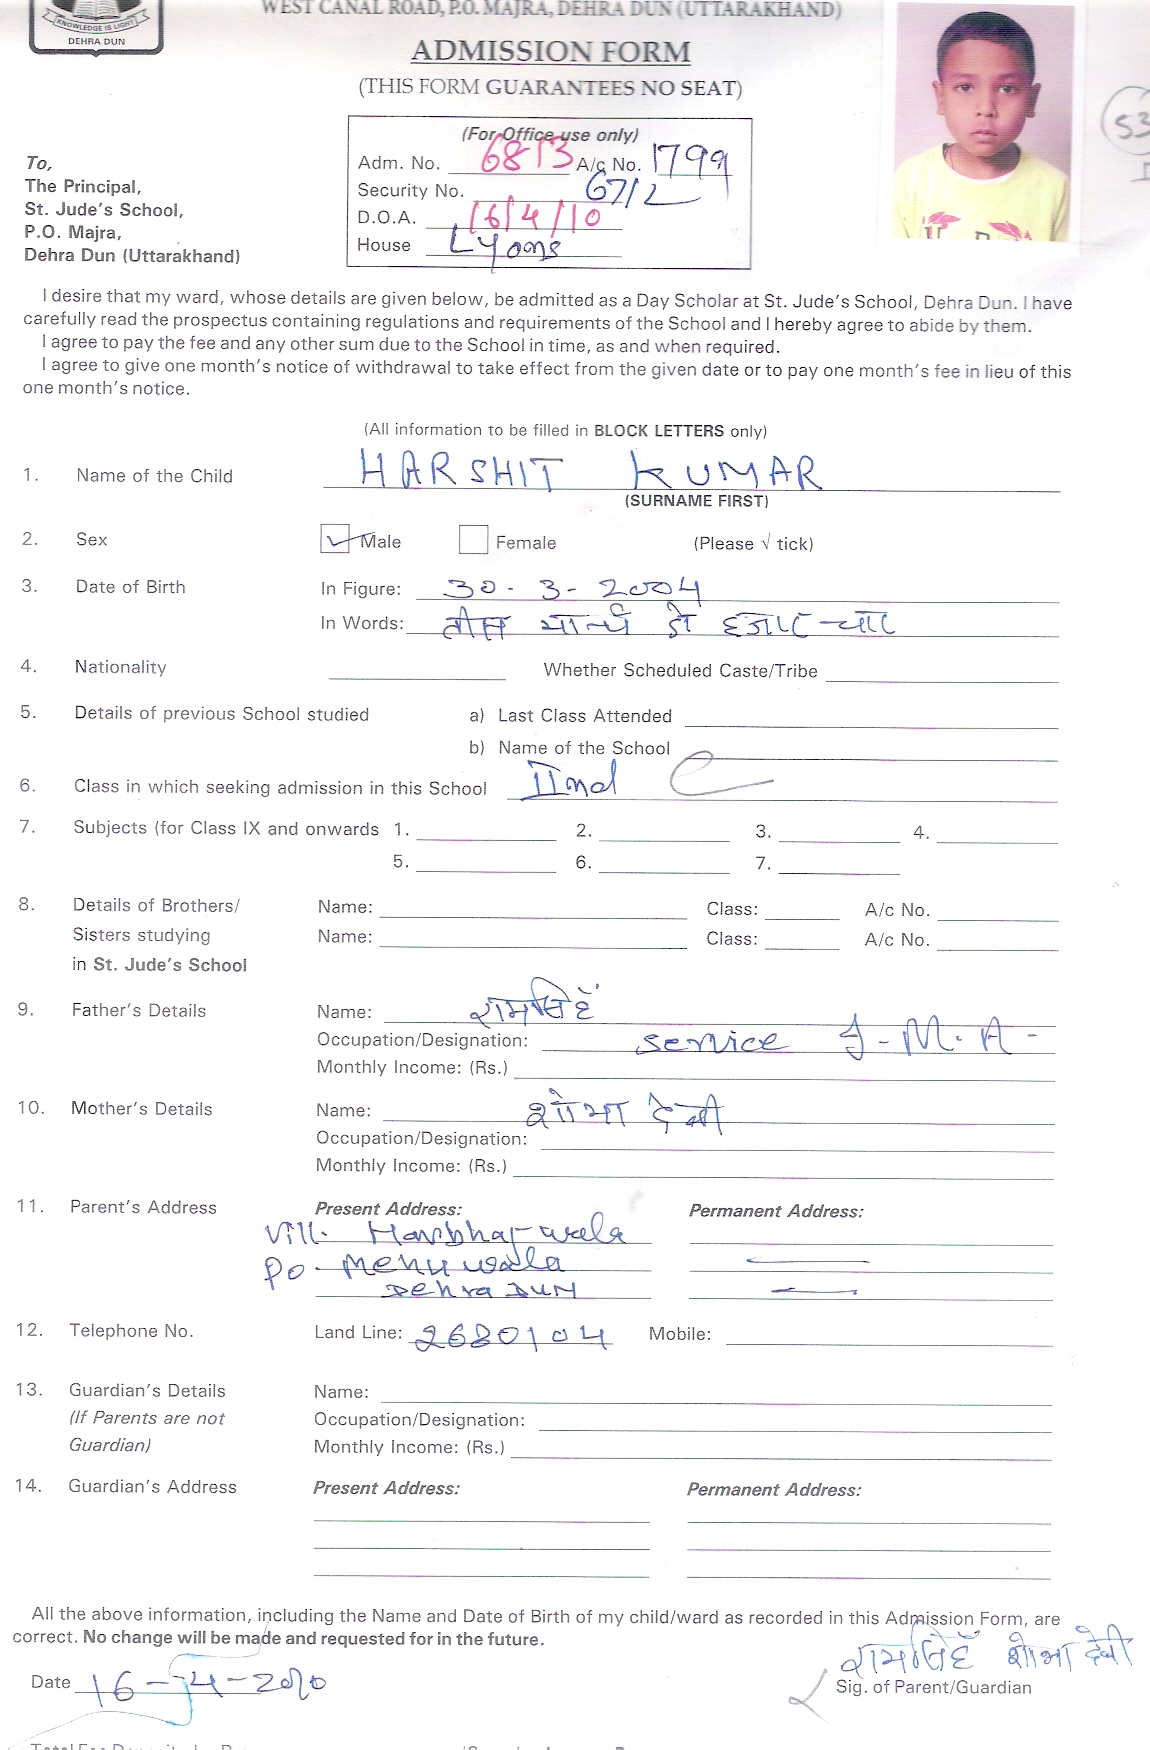 KNOWLEDGE IS LIGHT
DEHRA DUN
WEST CANAL ROAD, P.O. MAJRA, DEHRA DUN (UTTARAKHAND)
ADMISSION FORM
(THIS FORM GUARANTEES NO SEAT)
53
(For Office use only)
Adm. No. 6813 A/c No. 1799
Security No. 67/2
D.O.A. 16/4/10
House Lyons
To,
The Principal,
St. Jude's School,
P.O. Majra,
Dehra Dun (Uttarakhand)
I desire that my ward, whose details are given below, be admitted as a Day Scholar at St. Jude's School, Dehra Dun. I have
carefully read the prospectus containing regulations and requirements of the School and I hereby agree to abide by them.
I agree to pay the fee and any other sum due to the School in time, as and when required.
I agree to give one month's notice of withdrawal to take effect from the given date or to pay one month's fee in lieu of this
one month's notice.
(All information to be filled in BLOCK LETTERS only)
1. Name of the Child HARSHIT KUMAR
(SURNAME FIRST)
2. Sex Male Female (Please √ tick)
3. Date of Birth In Figure: 30-3-2004
In Words: तीस मार्च दो हजार चार
4. Nationality Whether Scheduled Caste/Tribe
5. Details of previous School studied a) Last Class Attended
b) Name of the School
6. Class in which seeking admission in this School IInd
7. Subjects (for Class IX and onwards 1. 2. 3. 4.
5. 6. 7.
8. Details of Brothers/ Name: Class: A/c No.
Sisters studying Name: Class: A/c No.
in St. Jude's School
9. Father's Details Name: रामसिंह
Occupation/Designation: service I.M.A.
Monthly Income: (Rs.)
10. Mother's Details Name: शोभा देवी
Occupation/Designation:
Monthly Income: (Rs.)
11. Parent's Address Present Address: Permanent Address:
Vill. Haribhajwala
PO. Mehuwala
Dehra DUN
12. Telephone No. Land Line: 2680104 Mobile:
13. Guardian's Details Name:
(If Parents are not Occupation/Designation:
Guardian) Monthly Income: (Rs.)
14. Guardian's Address Present Address: Permanent Address:
All the above information, including the Name and Date of Birth of my child/ward as recorded in this Admission Form, are
correct. No change will be made and requested for in the future.
रामसिंह शोभा देवी
Date 16-4-2010 Sig. of Parent/Guardian